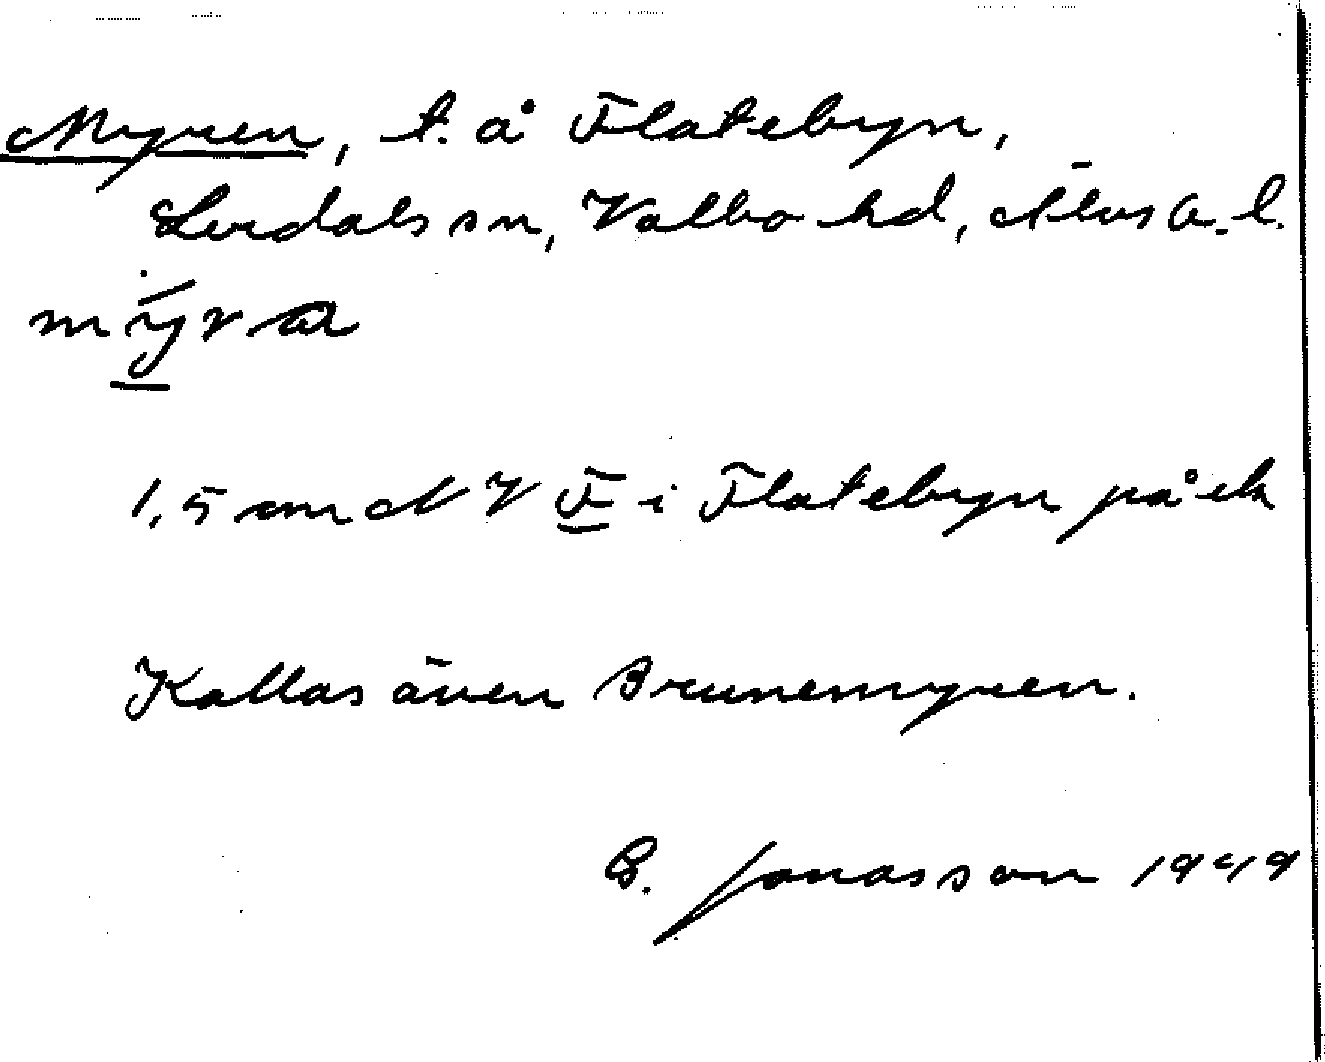 Myren, t. å Flatebyn,
Lerdals sn, Valbo hd, Älvsb. l.
1,5 cm NV F i Flatebyn på ek
Kallas även Brunemyren.
G. Jonasson 1949